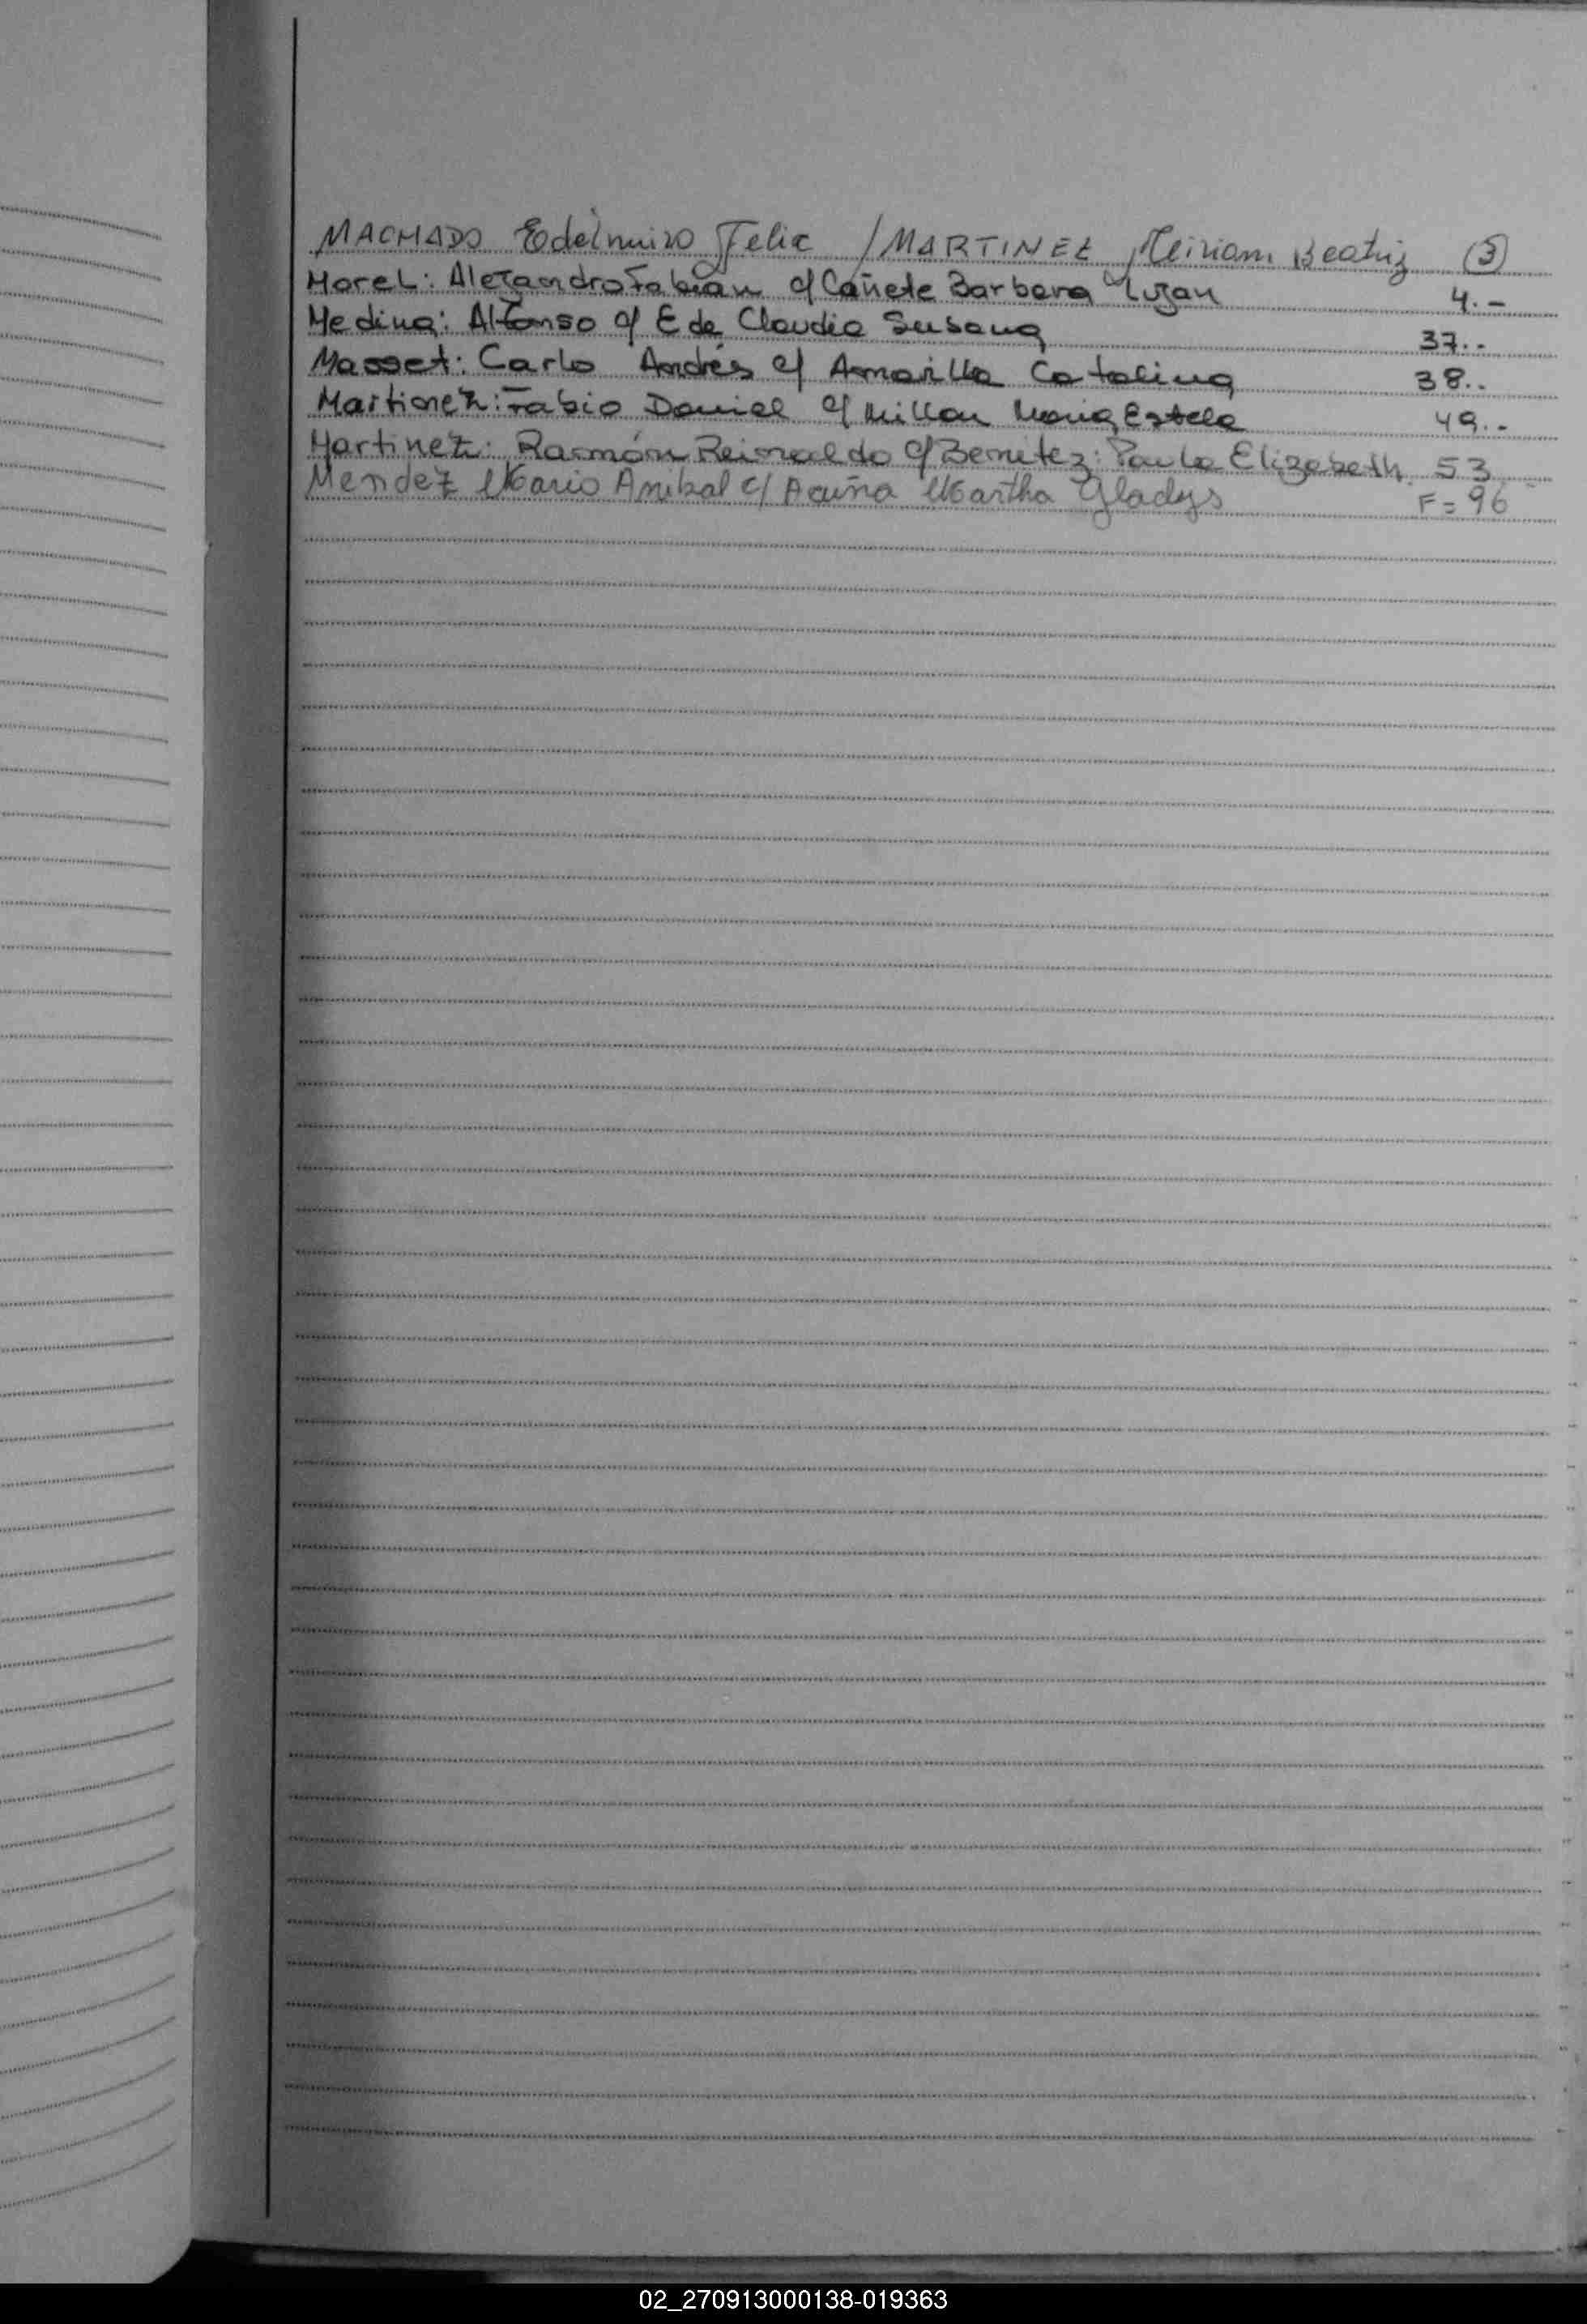 MACHADO Edelmiro Felix / MARTINEZ Miriam Beatriz (3)
Morel: Alexandro Fabián c/ Cañete Barbara Luzan 4.-
Medina: Alfonso c/ E de Claudia Susana 37..
Masset: Carlo Andrés c/ Amarilla Catalina 38..
Martinez: Fabio Daniel c/ Millan Maria Estela 49..
Martinez: Ramón Reinaldo c/ Benitez: Paula Elizabeth 53
Mendez Mario Anibal c/ Acuña Martha Gladys F = 96
02_270913000138-019363